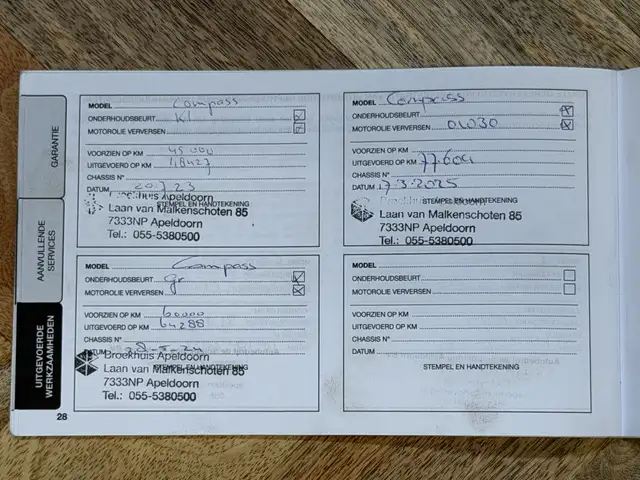 GARANTIE
AANVULLENDE
SERVICES
UITGEVOERDE
WERKZAAMHEDEN
28
MODEL Compass
ONDERHOUDSBEURT Kl
MOTOROLIE VERVERSEN
VOORZIEN OP KM 45000
UITGEVOERD OP KM 48427
CHASSIS N°
DATUM 20.7.23
STEMPEL EN HANDTEKENING
Broekhuis Apeldoorn
Laan van Malkenschoten 85
7333NP Apeldoorn
Tel.: 055-5380500
MODEL Compass
ONDERHOUDSBEURT
MOTOROLIE VERVERSEN 0W30
VOORZIEN OP KM
UITGEVOERD OP KM 77604
CHASSIS N°
DATUM 17.3.2025
STEMPEL EN HANDTEKENING
Broekhuis Apeldoorn
Laan van Malkenschoten 85
7333NP Apeldoorn
Tel.: 055-5380500
MODEL Compass
ONDERHOUDSBEURT gr
MOTOROLIE VERVERSEN
VOORZIEN OP KM 60000
UITGEVOERD OP KM 64288
CHASSIS N°
DATUM
STEMPEL EN HANDTEKENING
Broekhuis Apeldoorn
Laan van Malkenschoten 85
7333NP Apeldoorn
Tel.: 055-5380500
MODEL
ONDERHOUDSBEURT
MOTOROLIE VERVERSEN
VOORZIEN OP KM
UITGEVOERD OP KM
CHASSIS N°
DATUM
STEMPEL EN HANDTEKENING